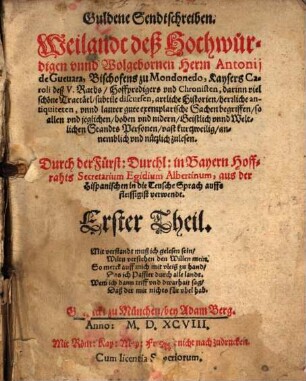 Guldene Sendtschreiben.
Weilandt deß Hochwür-
digen vnnd Wolgebornen Herrn Antonij
de Gueuara, Bischofens zu Mondonedo, Kaysers Ca-
roli deß V. Raths / Hoffpredigers vnd Chronisten, darinn viel
schöne Tractätl / subtile discursen, artliche Historien / herrliche an-
tiquiteten, vnnd lautter gute exemplarische Sachen begriffen / so
allen vnd jeglichen / hohen vnd nidern / Geistlich vnnd Welt-
lichen Standts Personen / vast kurtzweilig / an-
nemblich vnd nützlich zulesen.
Durch der Fürst: Durchl: in Bayern Hoff-
rahts Secretarium Egidium Albertinum, auß der
Hispanischen in die Teusche Sprach auffs
fleissigist verwendt.
Erster Theil.
Mit verstandt muß ich gelesen sein /
Wilen verstehen den Willen mein /
So merck auff mich mit vleiß zu hand /
ich Passier durch alle lande.
Wem ich dann triff vnd dwarhait sag /
Daß der mir nichts für vbel hab.
zu München / bey Adam Berg.
Anno: M. D. XCVIII.
Mit Röm: Kay: May: nicht nachzudrucken.
Cum licentia